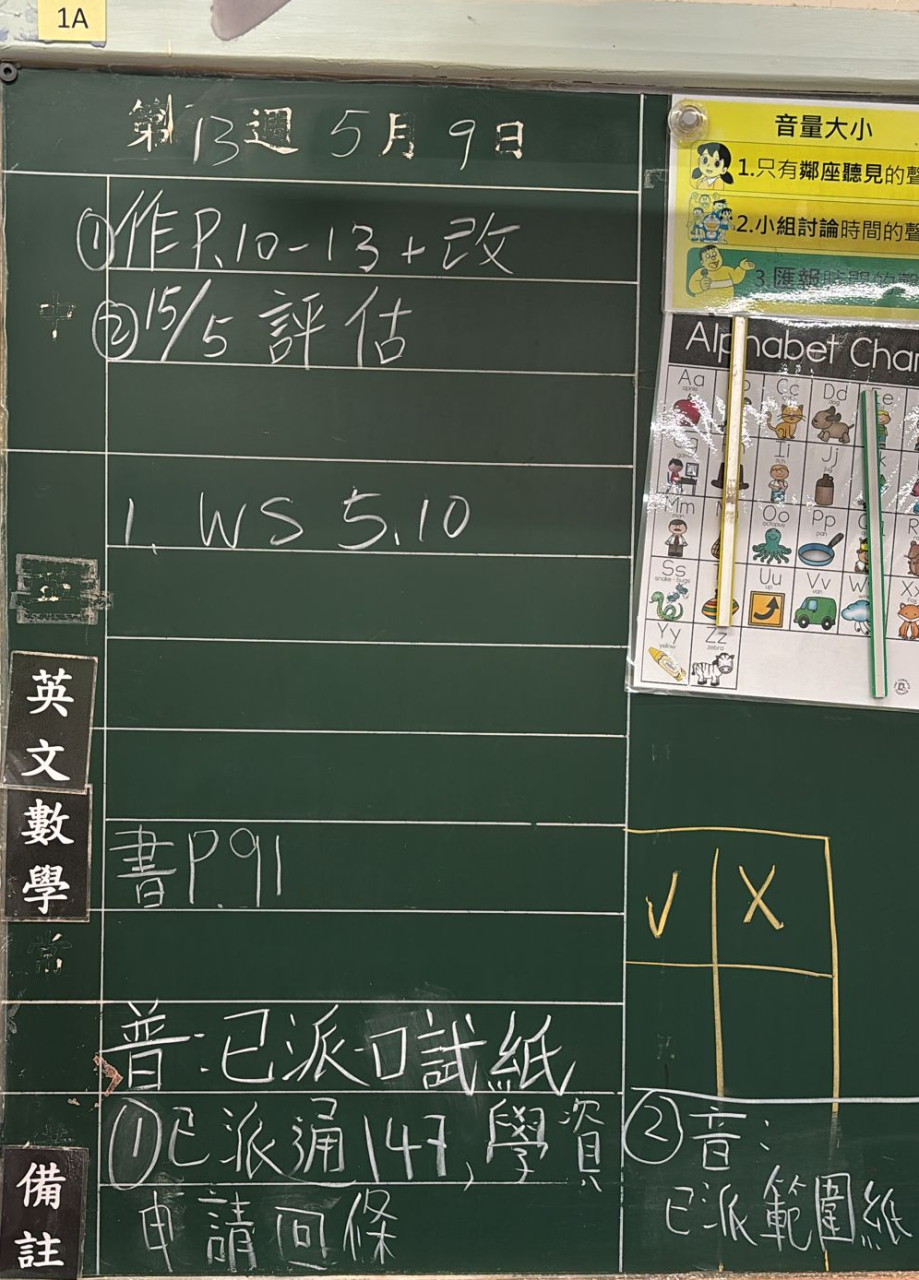 1A
第13週 5月9日
①作P.10-13+改
中
②15/5 評估
1. WS 5.10
英文
數學
書P.91
常
普:已派口試紙
①已派通147,學資
申請回條
備註
②音:
已派範圍紙
音量大小
1.只有鄰座聽見的聲
2.小組討論時間的聲
3.匯報時間的聲
Alphabet Char
Aa Cc Dd Ee
Ii Jj
Mm Oo Pp
man octopus pan
Ss Uu Vv W Xx
snake - bugs up van
Yy Zz
yellow zebra
√ X